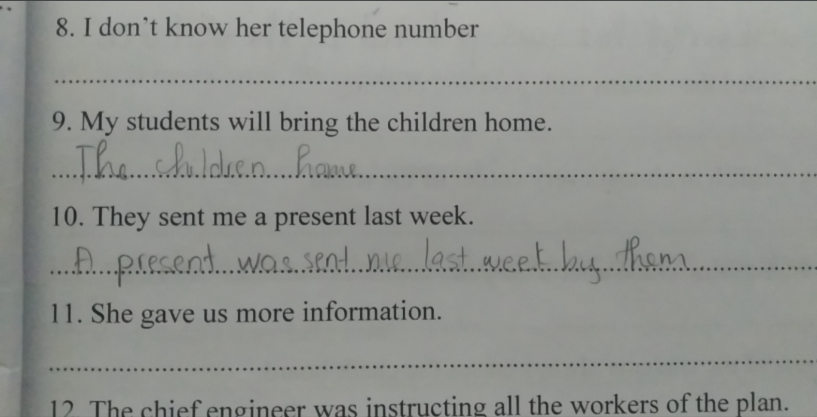 8. I don't know her telephone number
9. My students will bring the children home.
The children home
10. They sent me a present last week.
A present was sent me last week by them
11. She gave us more information.
12. The chief engineer was instructing all the workers of the plan.